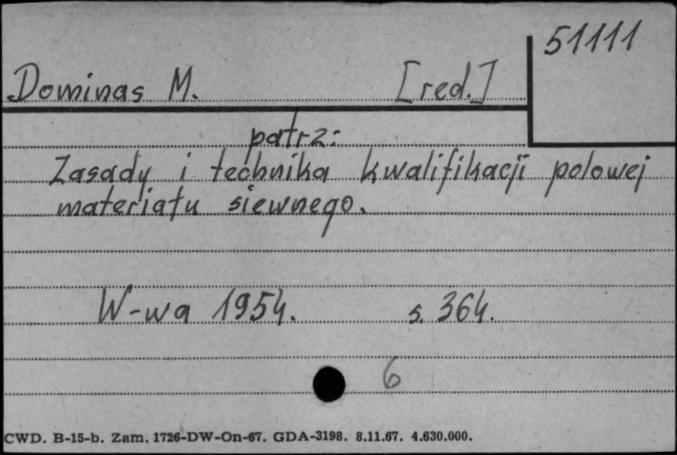 51111
Dominas M. [red.]
patrz:
Zasady i technika kwalifikacji polowej
materiału siewnego.
W-wa 1954. s. 364.
6
CWD. B-15-b. Zam. 1726-DW-On-67. GDA-3198. 8.11.67. 4.630.000.